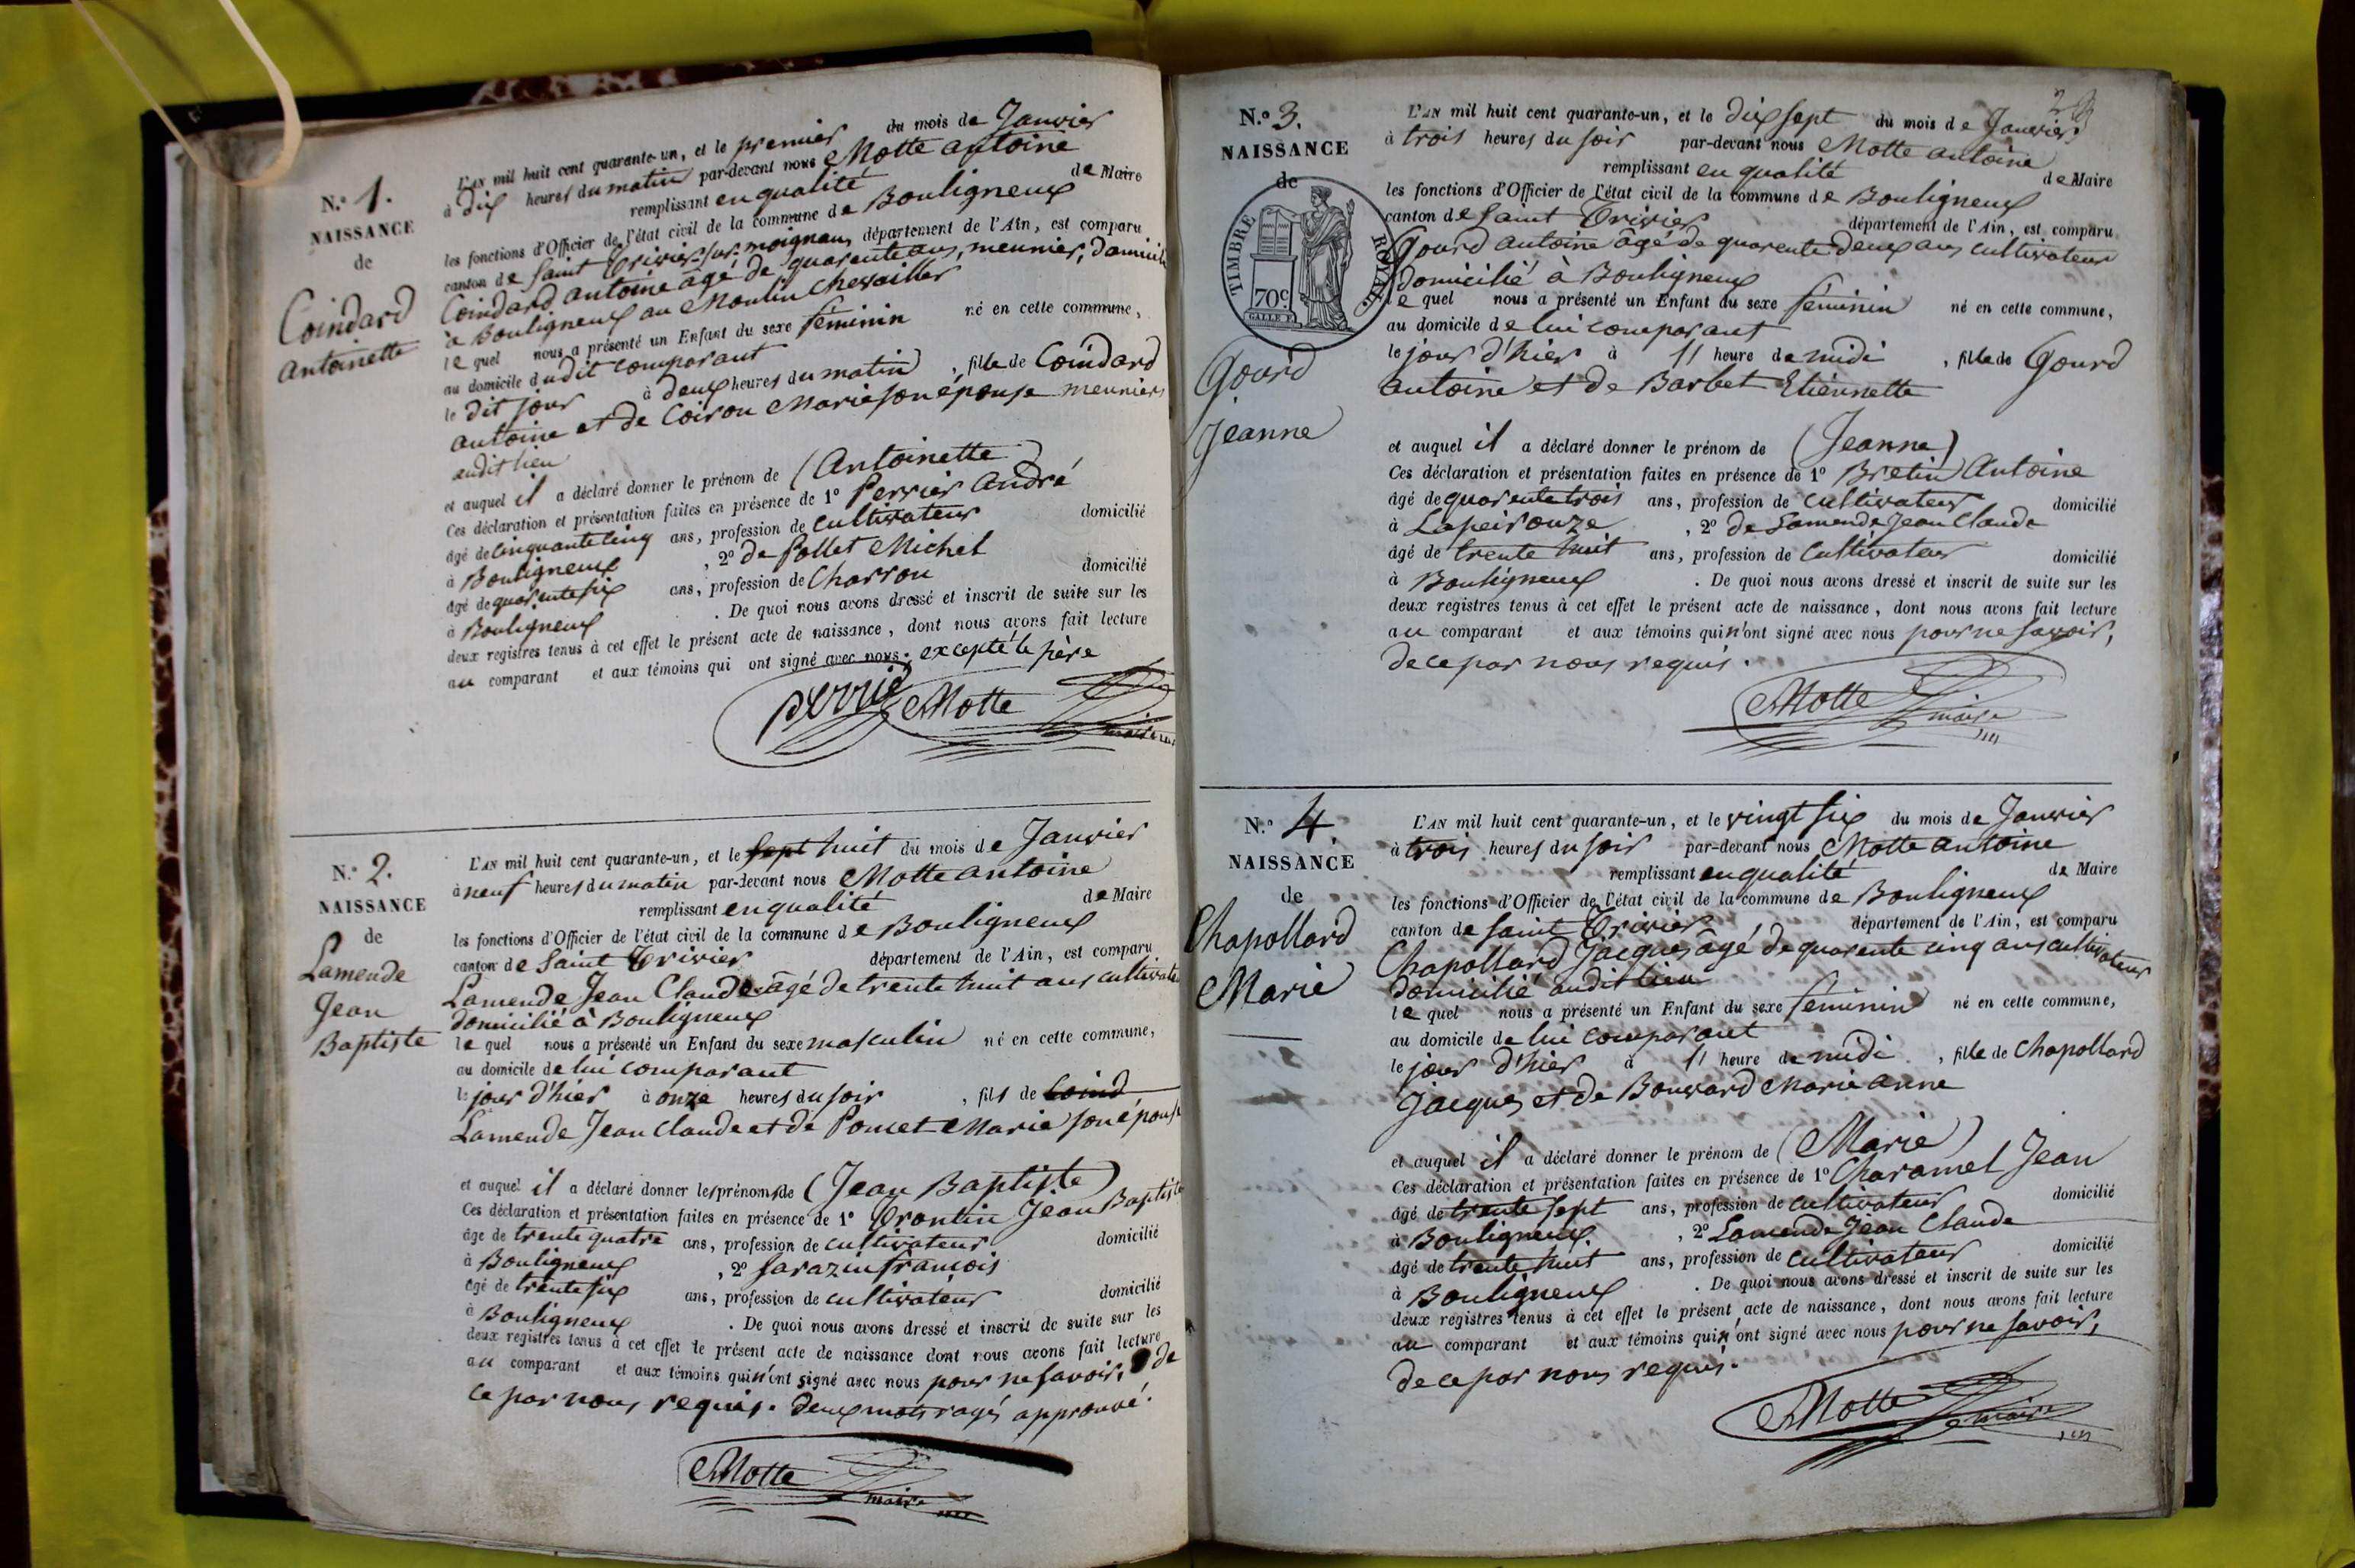 N.º 1.
NAISSANCE
de
Coindard
Antoinette
L'AN mil huit cent quarante-un, et le premier du mois de Janvier
à dix heures du matin par-devant nous Motte antoine
remplissant en qualité de Maire
les fonctions d'Officier de l'état civil de la commune de Bouligneux
canton de Saint Trivier sur moignans département de l'Ain, est comparu
Coindard antoine âgé de quarante ans, meunier, domicilié
à Bouligneux au Moulin Chevailler
lequel nous a présenté un Enfant du sexe féminin né en cette commune,
au domicile dudit comparant
le dit jour à deux heures du matin, fille de Coindard
antoine et de Coiron Marie son épouse meuniers
audit lieu
et auquel il a déclaré donner le prénom de (Antoinette)
Ces déclaration et présentation faites en présence de 1º Perrier André
âgé de cinquante cinq ans, profession de cultivateur domicilié
à Bouligneux, 2º de Pollet Michel
âgé de quarante six ans, profession de Charron domicilié
à Bouligneux. De quoi nous avons dressé et inscrit de suite sur les
deux registres tenus à cet effet le présent acte de naissance, dont nous avons fait lecture
au comparant et aux témoins qui ont signé avec nous, excepté le père
perrie Motte
maire
N.º 2.
NAISSANCE
de
Lamende
Jean
Baptiste
L'AN mil huit cent quarante-un, et le sept huit du mois de Janvier
à neuf heures du matin par-devant nous Motte antoine
remplissant en qualité de Maire
les fonctions d'Officier de l'état civil de la commune de Bouligneux
canton de Saint Trivier département de l'Ain, est comparu
Lamende Jean Claude âgé de trente huit ans cultivateur
domicilié à Bouligneux
lequel nous a présenté un Enfant du sexe masculin né en cette commune,
au domicile de lui comparant
le jour d'hier à onze heures du soir, fils de Coind
Lamende Jean Claude et de Poncet Marie son épouse
et auquel il a déclaré donner les prénoms de (Jean Baptiste)
Ces déclaration et présentation faites en présence de 1º Trontin Jean Baptiste
âgé de trente quatre ans, profession de cultivateur domicilié
à Bouligneux, 2º Sarazin francois
âgé de trente six ans, profession de cultivateur domicilié
à Bouligneux. De quoi nous avons dressé et inscrit de suite sur les
deux registres tenus à cet effet le présent acte de naissance dont nous avons fait lecture
au comparant et aux témoins qui n'ont signé avec nous pour ne savoir, de
ce par nous requis. deux mots rayés approuvé.
Motte
maire
23
N.º 3.
NAISSANCE
de
TIMBRE ROYAL
70c
GALLE F.
Gourd
Jeanne
L'AN mil huit cent quarante-un, et le dix sept du mois de Janvier
à trois heures du soir par-devant nous Motte antoine
remplissant en qualité de Maire
les fonctions d'Officier de l'état civil de la commune de Bouligneux
canton de Saint Trivier département de l'Ain, est comparu
Gourd antoine âgé de quarente deux ans cultivateur
domicilié à Bouligneux
lequel nous a présenté un Enfant du sexe féminin né en cette commune,
au domicile de lui comparant
le jour d'hier à 11 heure de midi, fille de Gourd
antoine et de Barbet Etiennette
et auquel il a déclaré donner le prénom de (Jeanne)
Ces déclaration et présentation faites en présence de 1º Bretin Antoine
âgé de quarente trois ans, profession de cultivateur domicilié
à Lapeirouze, 2º de Lamende Jean Claude
âgé de trente huit ans, profession de Cultivateur domicilié
à Bouligneux. De quoi nous avons dressé et inscrit de suite sur les
deux registres tenus à cet effet le présent acte de naissance, dont nous avons fait lecture
au comparant et aux témoins qui n'ont signé avec nous pour ne savoir,
de ce par nous requis.
Motte
maire
N.º 4.
NAISSANCE
de
Chapollard
Marie
L'AN mil huit cent quarante-un, et le vingt six du mois de Janvier
à trois heures du soir par-devant nous Motte antoine
remplissant en qualité de Maire
les fonctions d'Officier de l'état civil de la commune de Bouligneux
canton de Saint Trivier département de l'Ain, est comparu
Chapollard Jacques âgé de quarente cinq ans cultivateur
domicilié audit lieu
lequel nous a présenté un Enfant du sexe féminin né en cette commune,
au domicile de lui comparant
le jour d'hier à 11 heure de midi, fille de Chapollard
Jacques et de Bouvard Marie anne
et auquel il a déclaré donner le prénom de (Marie)
Ces déclaration et présentation faites en présence de 1º Charamel Jean
âgé de trente sept ans, profession de cultivateur domicilié
à Bouligneux, 2º Lamende Jean Claude
âgé de trente huit ans, profession de cultivateur domicilié
à Bouligneux. De quoi nous avons dressé et inscrit de suite sur les
deux registres tenus à cet effet le présent acte de naissance, dont nous avons fait lecture
au comparant et aux témoins qui n'ont signé avec nous pour ne savoir,
de ce par nous requis.
Motte
maire